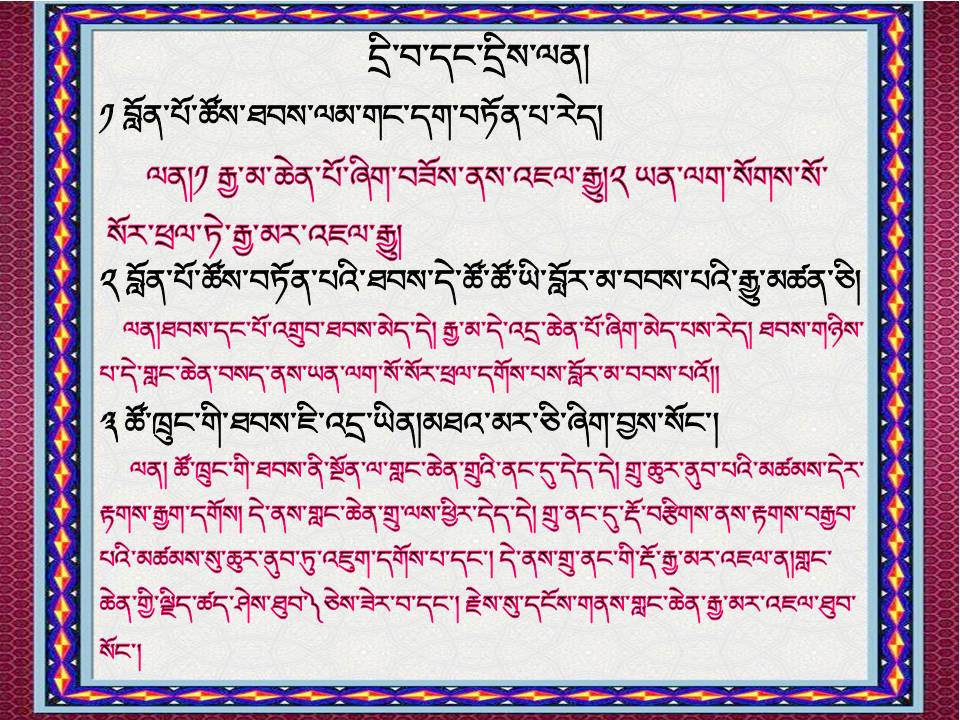 དྲི་བ་དང་དྲིས་ལན།
༡ བློན་པོ་ཚོས་ཐབས་ལམ་གང་དག་བཏོན་པ་རེད།
ལན།༡ རྒྱ་མ་ཆེན་པོ་ཞིག་བཟོས་ནས་འཇལ་རྒྱུ།༢ ཡན་ལག་སོགས་སོ་
སོར་ཕྲལ་ཏེ་རྒྱ་མར་འཇལ་རྒྱུ།
༢ བློན་པོ་ཚོས་བཏོན་པའི་ཐབས་དེ་ཚོ་ཚོ་ཡི་བློར་མ་བབས་པའི་རྒྱུ་མཚན་ཅི།
ལན།ཐབས་དང་པོ་འགྲུབ་ཐབས་མེད་དེ། རྒྱ་མ་དེ་འདྲ་ཆེན་པོ་ཞིག་མེད་པས་རེད། ཐབས་གཉིས་
པ་དེ་གླང་ཆེན་བསད་ནས་ཡན་ལག་སོ་སོར་ཕྲལ་དགོས་པས་བློར་མ་བབས་པའོ།།
༣ ཚོ་ཁྲུང་གི་ཐབས་ཇི་འདྲ་ཡིན།མཐའ་མར་ཅི་ཞིག་བྱས་སོང་།
ལན། ཚོ་ཁྲུང་གི་ཐབས་ནི་སྔོན་ལ་གླང་ཆེན་གྲུའི་ནང་དུ་དེད་དེ། གྲུ་ཆུར་ནུབ་པའི་མཚམས་དེར་
རྟགས་རྒྱག་དགོས། དེ་ནས་གླང་ཆེན་གྲུ་ལས་ཕྱིར་དེད་དེ། གྲུ་ནང་དུ་རྡོ་བརྩིགས་ནས་རྟགས་བརྒྱབ་
པའི་མཚམས་སུ་ཆུར་ནུབ་ཏུ་འཇུག་དགོས་པ་དང་། དེ་ནས་གྲུ་ནང་གི་རྡོ་རྒྱ་མར་འཇལ་ན།གླང་
ཆེན་གྱི་ལྗིད་ཚད་ཤེས་ཐུབ༽ ཅེས་ཟེར་བ་དང་། རྗེས་སུ་དངོས་གནས་གླང་ཆེན་རྒྱ་མར་འཇལ་ཐུབ་
སོང་།